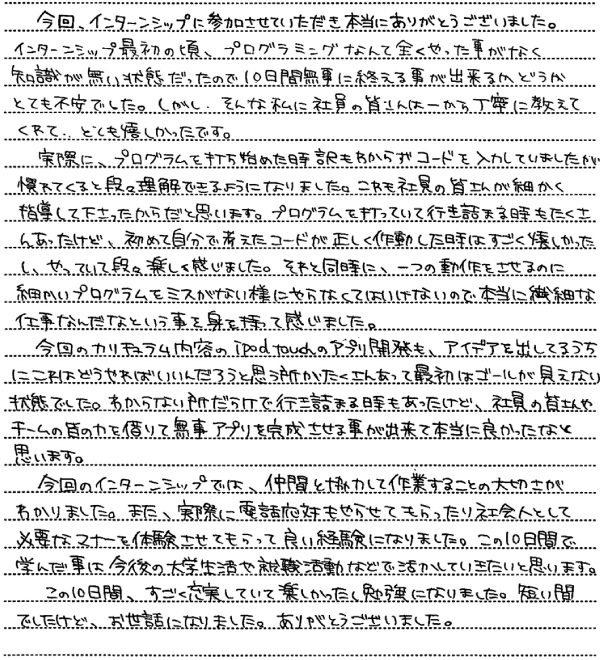 今回、インターンシップに参加させていただき本当にありがとうございました。
インターンシップ最初の頃、プログラミングなんて全くやった事がなく
知識が無い状態だったので10日間無事に終える事が出来るかどうか
とても不安でした。しかし、そんな私に社員の皆さんは一から丁寧に教えて
くれて、とても嬉しかったです。
実際に、プログラムを打ち始めた時訳もわからずコードを入力していましたが
慣れてくると段々理解できるようになりました。これも社員の皆さんが細かく
指導して下さったからだと思います。プログラムを打っていて行き詰まる時もたくさ
んあったけど、初めて自分で考えたコードが正しく作動した時はすごく嬉しかった
し、やっていて段々楽しく感じました。それと同時に、一つの動作をさせるのに
細かいプログラムをミスがない様にやらなくてはいけないので本当に繊細な
仕事なんだなという事を身を持って感じました。
今回のカリキュラム内容のiPod touchのアプリ開発も、アイデアを出してるうち
にこれはどうやればいいんだろうと思う所がたくさんあって最初はゴールが見えない
状態でした。わからない所だらけで行き詰まる時もあったけど、社員の皆さんや
チームの皆の力を借りて無事アプリを完成させる事が出来て本当に良かったなと
思います。
今回のインターンシップでは、仲間と協力して作業することの大切さが
わかりました。また、実際に電話応対もやらせてもらったり社会人として
必要なマナーを体験させてもらって良い経験になりました。この10日間で
学んだ事は今後の大学生活や就職活動などで活かしていきたいと思います。
この10日間、すごく充実していて楽しかったし勉強になりました。短い間
でしたけど、お世話になりました。ありがとうございました。